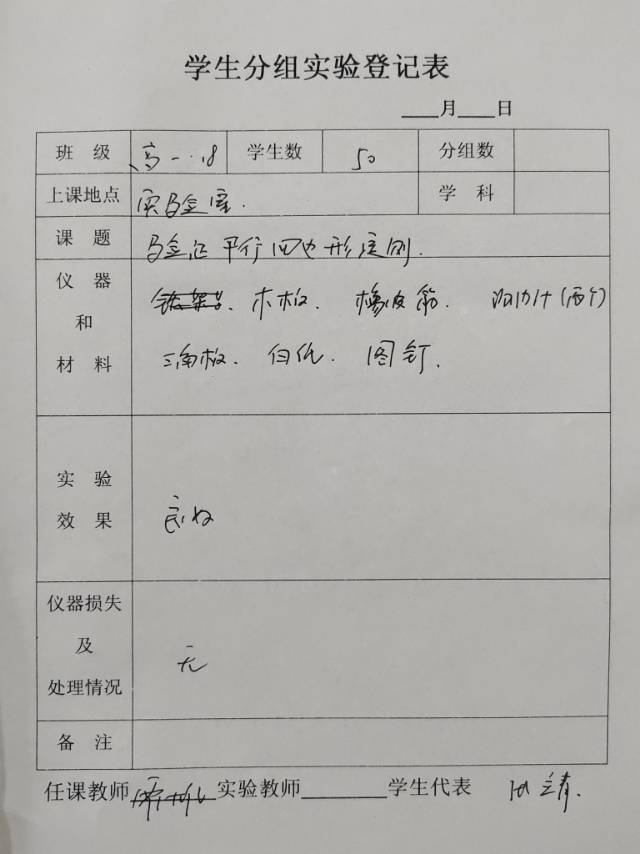 学生分组实验登记表
____月____日
班 级 高一.18 学生数 50 分组数
上课地点 实验室. 学 科
课 题 验证平行四边形定则.
仪 器 和 材 料 木板. 橡皮筋. 测力计(两个)
三角板. 白纸. 图钉.
实 验 效 果 良好
仪器损失 及 处理情况 无
备 注
任课教师 实验教师________学生代表